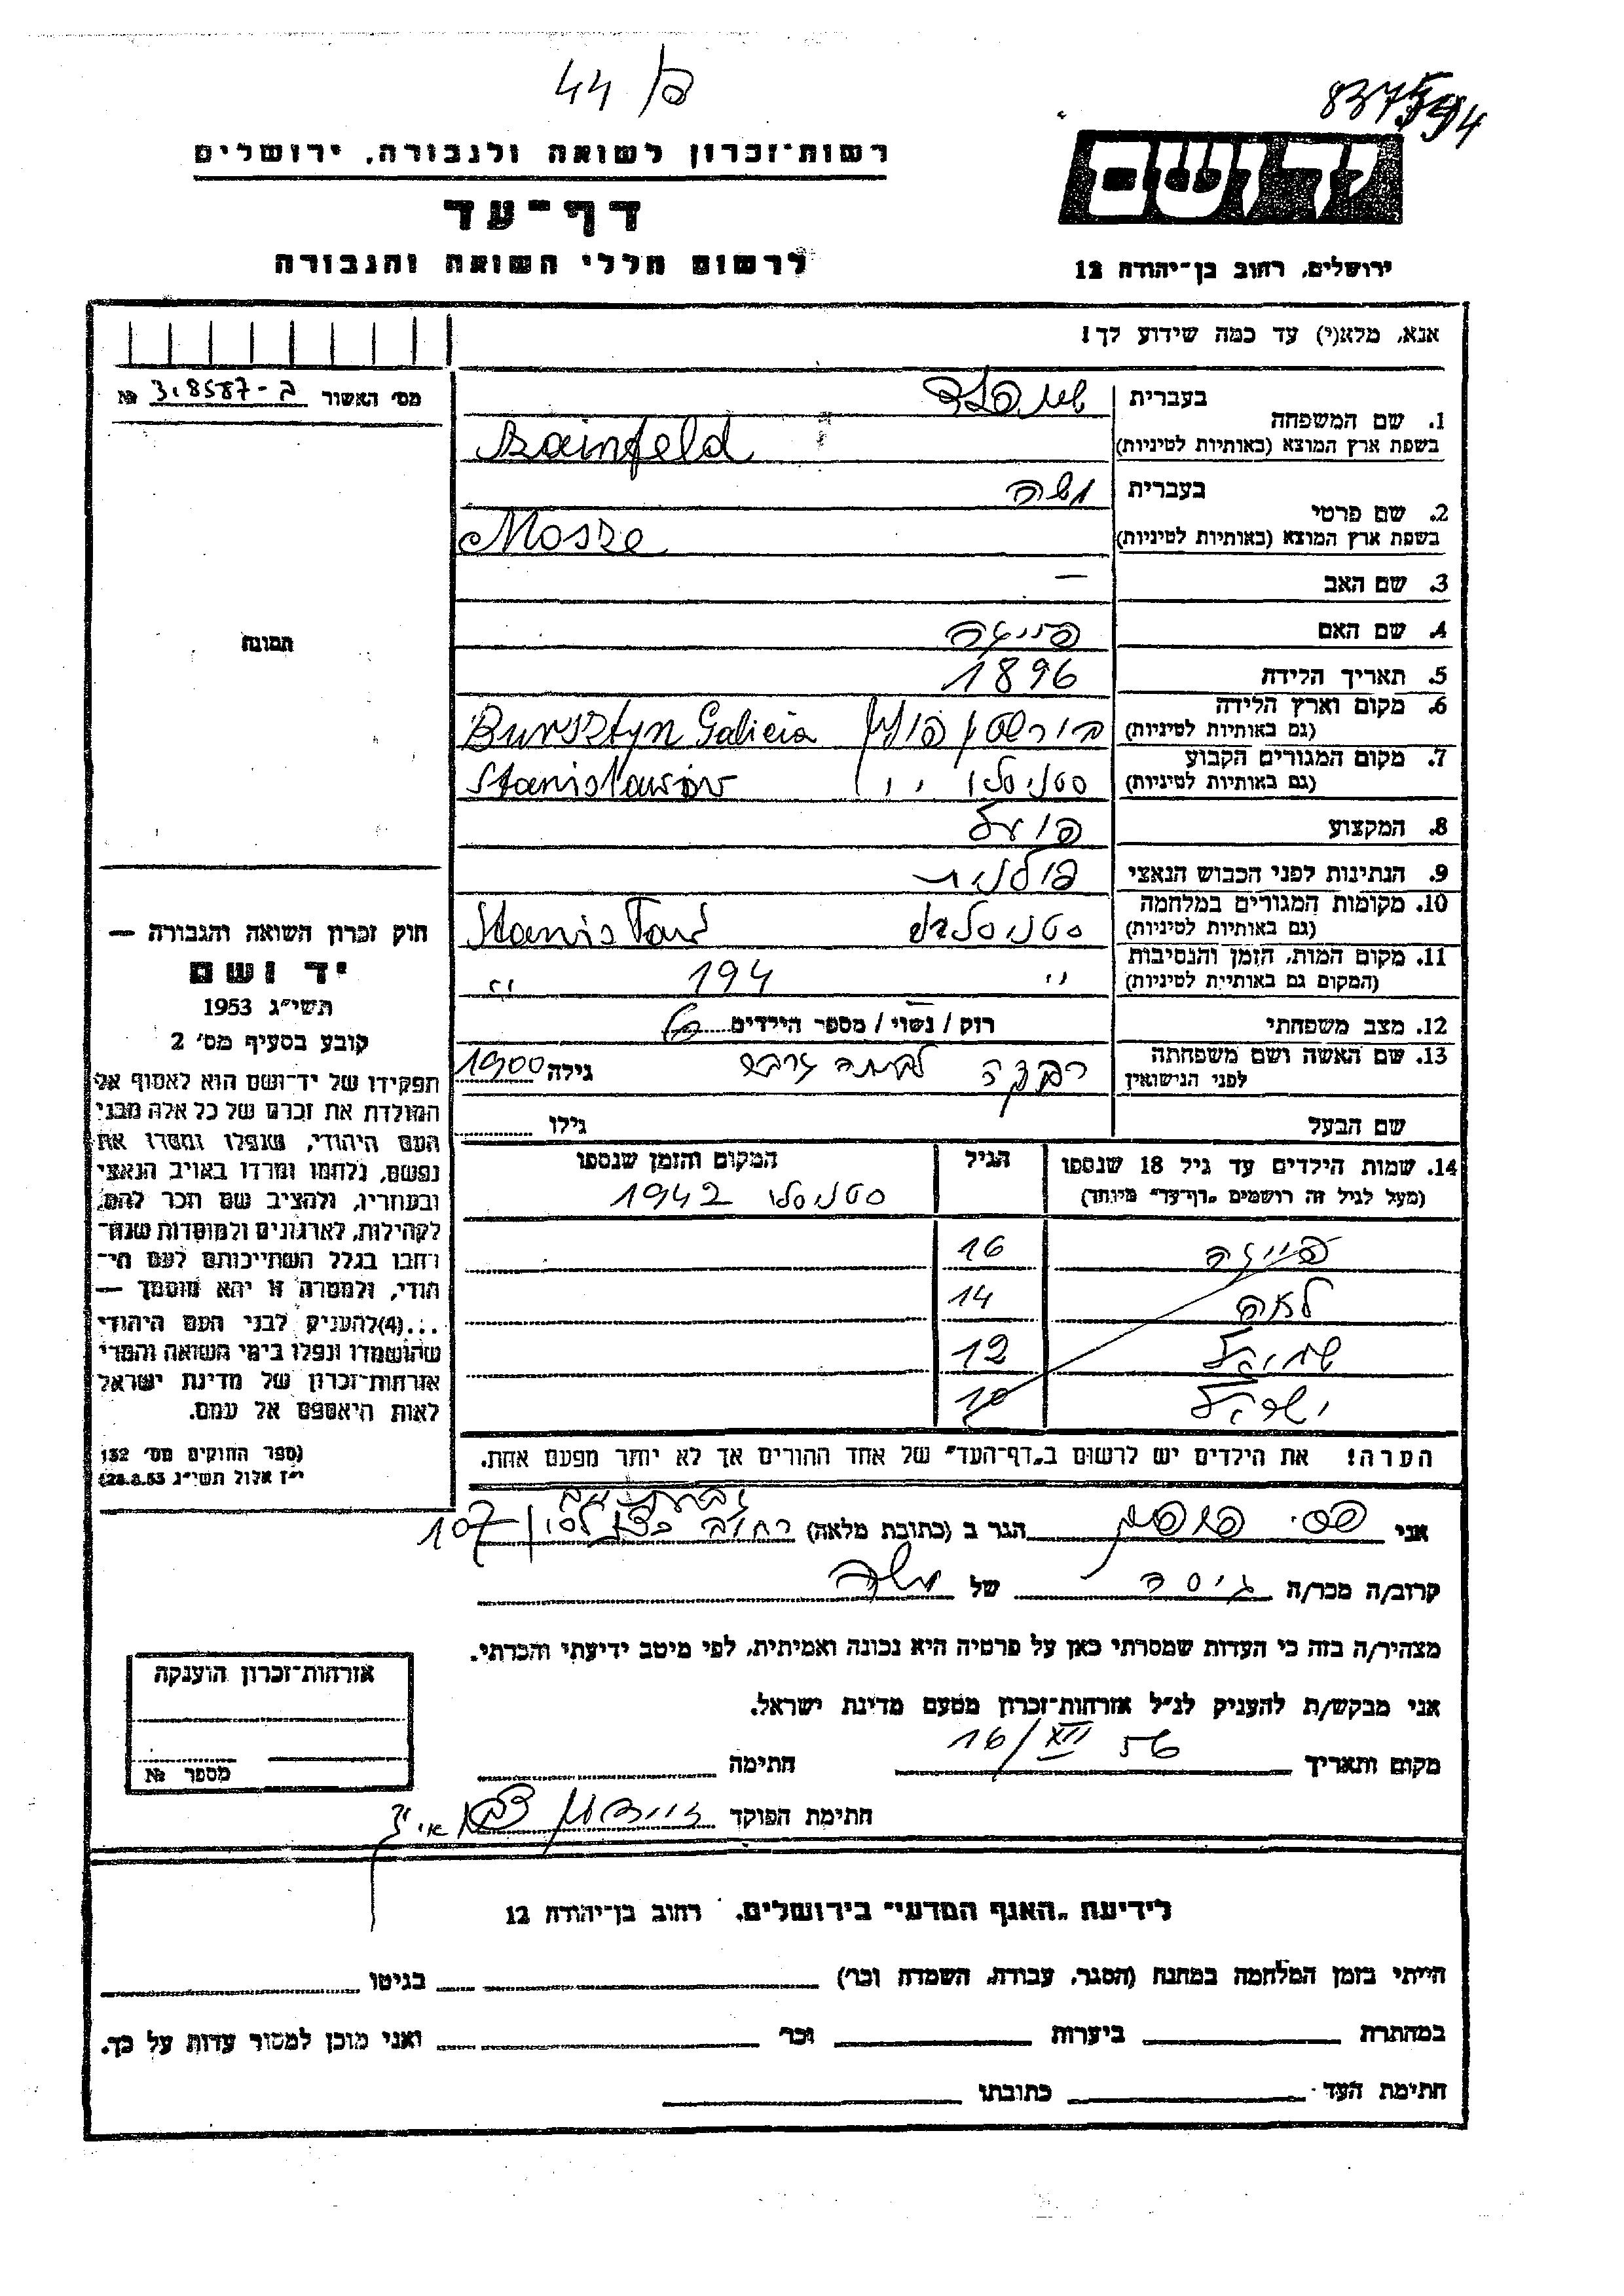 44 / פ
837594
רשות־זכרון לשואה ולגבורה, ירושלים
דף־עד
לרשום חללי השואה והגבורה
יד ושם
ירושלים, רחוב בן־יהודה 12
אנא, מלא(י) עד כמה שידוע לך!
מס׳ האשור 3.8587-ב №
1. שם המשפחה
בעברית שיינפלד
בשפת ארץ המוצא (באותיות לטיניות) Szainfeld
2. שם פרטי
בעברית משה
בשפת ארץ המוצא (באותיות לטיניות) Mosze
3. שם האב —
4. שם האם פייגה
5. תאריך הלידה 1896
6. מקום וארץ הלידה (גם באותיות לטיניות) בורשטין פולין Bursztyn Galicia
7. מקום המגורים הקבוע (גם באותיות לטיניות) סטניסלו ״ Stanislawow
8. המקצוע פועל
9. הנתינות לפני הכבוש הנאצי פולנית
10. מקומות המגורים במלחמה (גם באותיות לטיניות) Stanislaw
11. מקום המות, הזמן והנסיבות (המקום גם באותיות לטיניות) ״ 194 ״
12. מצב משפחתי רוק / נשוי / מספר הילדים
13. שם האשה ושם משפחתה לפני הנישואין רבקה לבית גילה 1900
שם הבעל גילו
14. שמות הילדים עד גיל 18 שנספו
(מעל לגיל זה רושמים „דף־עד״ מיוחד)
הגיל
המקום והזמן שנספו
סטניסלו 1942
פייגה 16
לאה 14
שמואל 12
ישראל 10
הערה! את הילדים יש לרשום ב„דף־העד״ של אחד ההורים אך לא יותר מפעם אחת.
תמונה
חוק זכרון השואה והגבורה —
יד ושם
תשי״ג 1953
קובע בסעיף מס׳ 2
תפקידו של יד־ושם הוא לאסוף אל
המולדת את זכרם של כל אלה מבני
העם היהודי, שנפלו ומסרו את
נפשם, נלחמו ומרדו באויב הנאצי
ובעוזריו, ולהציב שם וזכר להם,
לקהילות, לארגונים ולמוסדות שנח־
רבו בגלל השתייכותם לעם הי־
הודי, ולמטרה זו יהא מוסמך —
...(4)להעניק לבני העם היהודי
שהושמדו ונפלו בימי השואה והמרי
אזרחות־זכרון של מדינת ישראל
לאות היאספם אל עמם.
(ספר החוקים מס׳ 132
י״ז אלול תשי״ג 28.8.53)
אני הגר ב (כתובת מלאה) רחוב 107
קרוב/ה מכר/ה גיסה של משה
מצהיר/ה בזה כי העדות שמסרתי כאן על פרטיה היא נכונה ואמיתית, לפי מיטב ידיעתי והכרתי.
אני מבקש/ת להעניק לנ״ל אזרחות־זכרון מטעם מדינת ישראל.
מקום ותאריך 16/XII 56 חתימה
חתימת הפוקד
אזרחות־זכרון הוענקה
מספר №
לידיעת „האגף המדעי״ בירושלים, רחוב בן־יהודה 12
הייתי בזמן המלחמה במחנה (הסגר, עבודה, השמדה וכו׳) בגיטו
במחתרת ביערות וכו׳ ואני מוכן למסור עדות על כך.
חתימת העד כתובתו